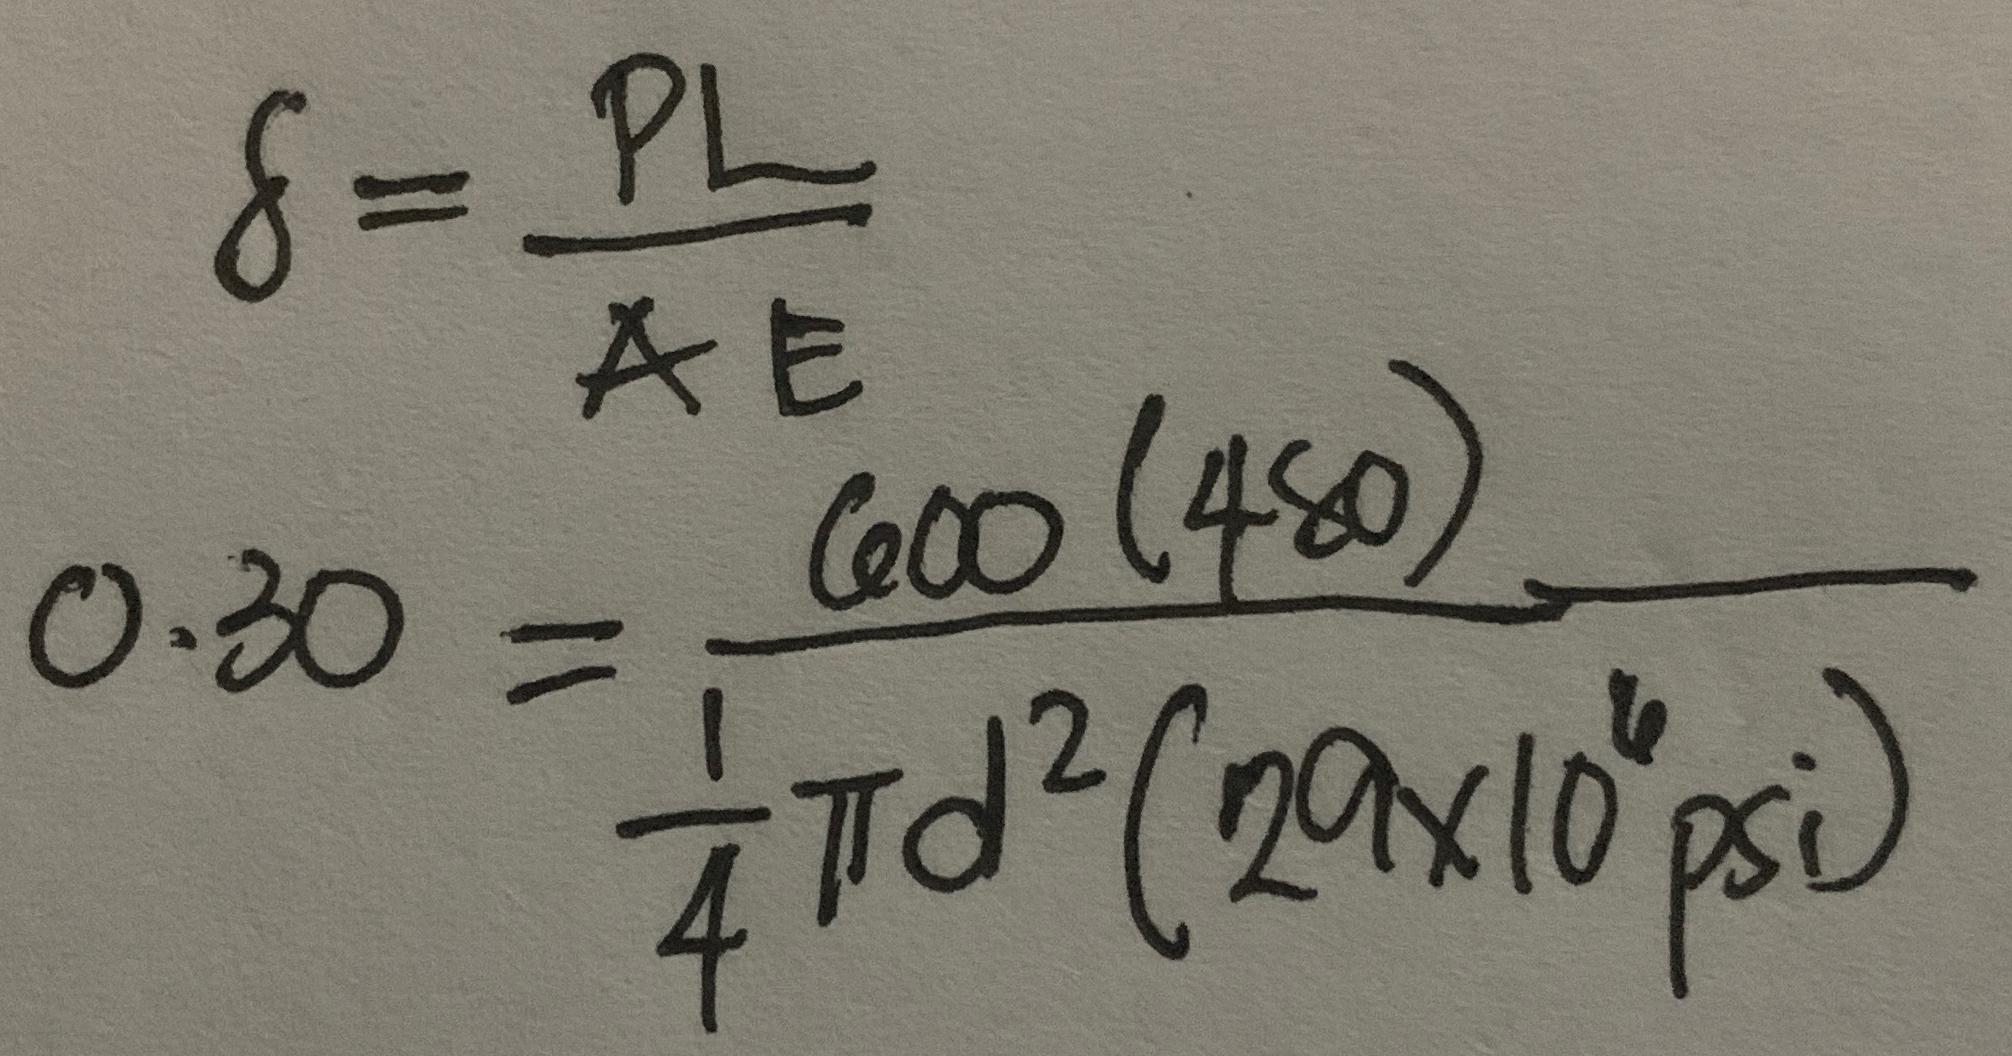 δ = PL / AE
0.30 = 600 (480) / 1/4 πd² (29x10⁶ psi)